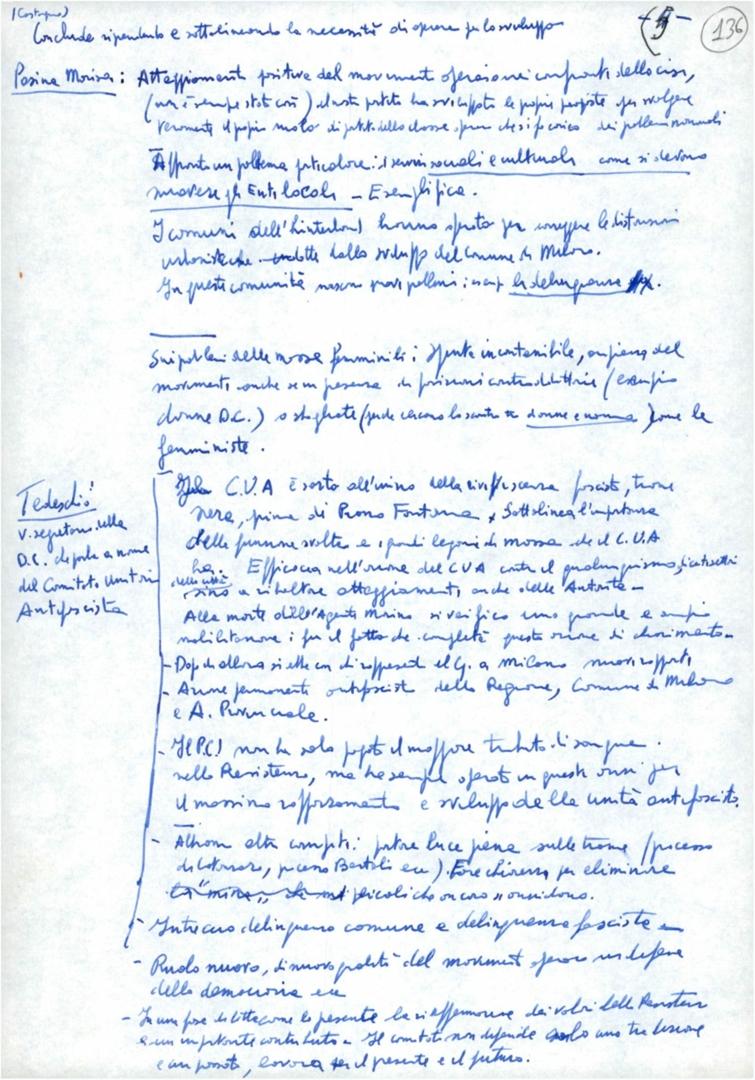 (Castagna)
Conclude ripendendo e sottolineando la necessità di operare per lo sviluppo
- 5 - 136
Posina Morisa: Atteggiamenti positiva del movimento operaio nei confronti della crisi,
(non è sempre stato così) il nostro partito ha sviluppato le proprie proposte per svolgere
veramente il proprio ruolo di partito della classe operaia che si fa carico dei problemi nazionali
Affronta un problema particolare: i servizi sociali e culturali come si devono
muovere gli Enti locali - Esemplifica.
I comuni dell'hinterland hanno operato per correggere le distorsioni
urbanistiche indotte dallo sviluppo del comune di Milano.
In queste comunità nascono gravi problemi: es. la delinquenza
Sui problemi delle masse femminili: Spinta incontenibile, ampiezza del
movimento anche se in presenza di posizioni contraddittorie (esempio
donne D.C.) o sbagliate (quelle cercano lo scontro tra donne e uomo) come le
femministe.
Tedeschi:
V. segretario della
D.C. che parla a nome
del Comitato Unitario
Antifascista
C.U.A è sorto all'inizio della riviviscenza fascista, trame
nere, prima di Piazza Fontana. Sottolinea l'importanza
delle funzione svolta e i grandi legami di massa che il C.U.A
ha. Efficacia nell'azione del CUA contro il qualunquismo,
della città sino a ribaltare atteggiamenti anche delle Autorità -
Alla morte dell'Agente Marino si verificò una grande e ampia
mobilitazione: fu il fatto che completò questa azione di chiarimento -
- Dopo di allora si ebbe con il rappresent. del G. a Milano nuovi rapporti
- Azione permanente antifascista della Regione, Comune di Milano
e A. Provinciale.
- Il P.C.I non ha solo pagato il maggiore tributo di sangue
nella Resistenza, ma ha sempre operato in questi anni per
il massimo rafforzamento e sviluppo della unità antifascista.
- Abbiamo altri compiti: portare luce piena sulle trame (processo
di Catanzaro, processo Bertoli ecc). Fare chiarezza per eliminare
pericoli che ancora ci insidiano.
- Intreccio delinquenza comune e delinquenza fascista -
- Ruolo nuovo, di nuova qualità del movimento operaio in difesa
della democrazia ecc
- In una fase difficile come la presente la riaffermazione dei valori della Resistenza
è un importante contributo - Il comitato non difende solo una tradizione
e un passato, lavora per il presente e il futuro.